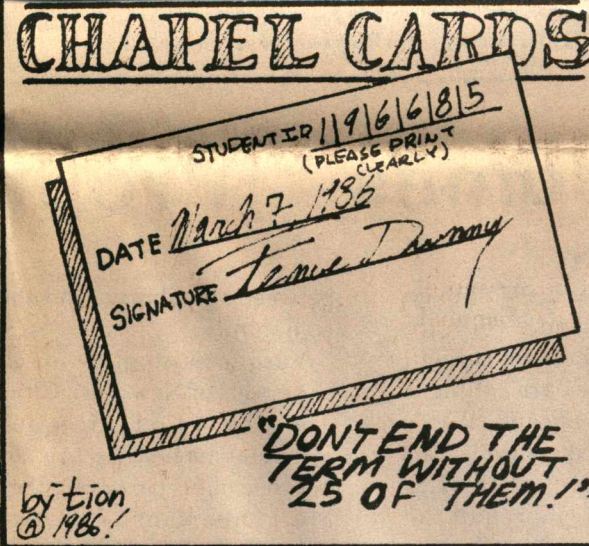 CHAPEL CARDS
STUDENT ID 1|9|6|6|8|5
(PLEASE PRINT
CLEARLY)
DATE March 7, 1986
SIGNATURE Downny
"DON'T END THE
TERM WITHOUT
25 OF THEM!"
by tion
Ⓐ 1986!